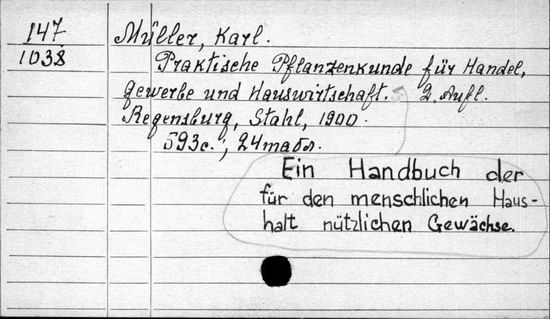 147
1038
Müller, Karl.
Praktische Pflanzenkunde für Handel,
gewerbe und Hauswirtschaft. 2 Aufl.
Regensburg, Stahl, 1900.
593с., 24табл.
Ein Handbuch der
für den menschlichen Haus-
halt nützlichen Gewächse.